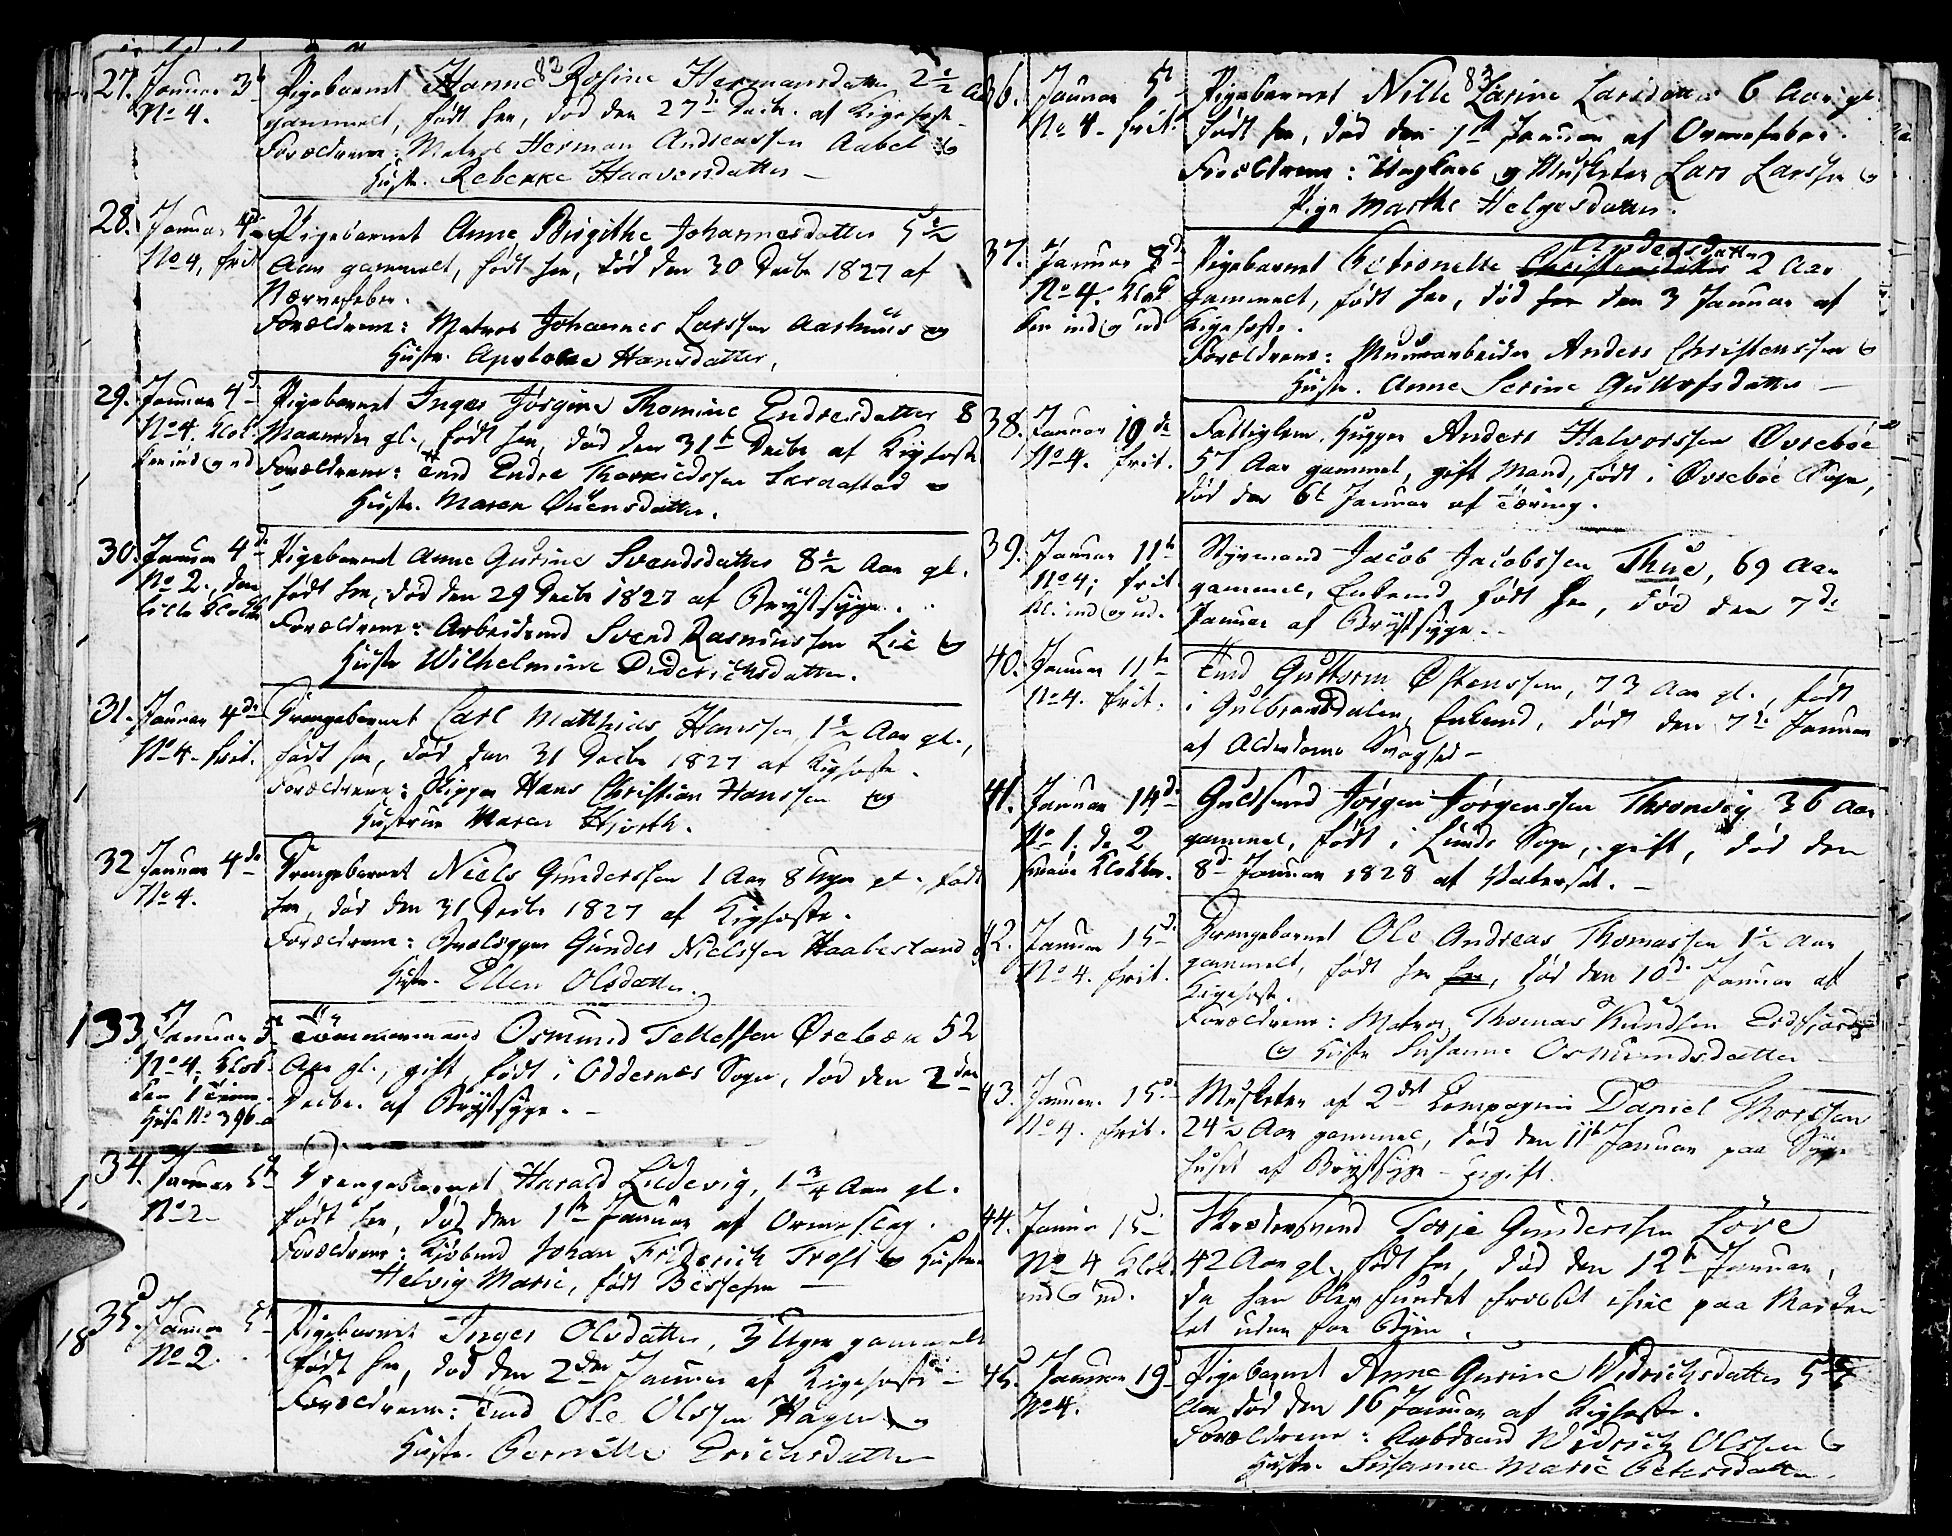 82
27. Januar 3d Pigebarnet Hanne Rosine Hermansdatter 2½ Aar
No 4. gammelt, født her, død den 27de Decbr. af Kighoste.
Forældrene: Matros Herman Andreassen Aabel og
Hustr. Rebekke Haaversdatter
28. Januar 4de Pigebarnet Anne Birgithe Johannesdatter 5½
No 4, frit Aar gammelt, født her, død den 30 Decbr 1827 af
Nervefeber.
Forældrene: Matros Johannes Larssen Aarhuus og
Hustr. Apolone Hansdatter.
29. Januar 4de Pigebarnet Inger Jørgine Thomine Endresdatter 8
No 4. Klok- Maaneder gl., født her, død den 31te Decbr af Kighoste
ken ind og ud Forældrene: Tmd Endre Thorkildssen og
Hustr. Maren Øuensdatter.
30. Januar 4de Pigebarnet Anne Gurine Svendsdatter 8½ Aar gl.
No 2., den født her, død den 29 Decbr 1827 af Brystsyge.
lille Klokke Forældrene: Arbeidsmd Svend Rasmussen Lie og
Hustr Wilhelmine Diderichsdatter.
31. Januar 4de Drengebarnet Carl Matthias Hanssen, 1½ Aar gl.,
No 4. frit. født her, død den 31 Decbr 1827 af Kighoste.
Forældrene: Skipper Hans Christian Hanssen og
Hustrue Maren Hjorth.
32 Januar 4de Drengebarnet Niels Gunderssen 1 Aar 8 Uger gl., født
No 4. her, død den 31 Decbr 1827 af Kighoste.
Forældrene: Gunder Nielssen Haabesland og
Hustr. Ellen Olsdatter.
33 Januar 5te Tømmermand Osmund TellefssenØrebæk 52
No 4, Klok- Aar gl., gift, født i Oddernes Sogn, død den 2den
ken 1 Time. Decbr. af Brystsyge.
Huus No 396.
34. Januar 5te Drengebarnet Harald Ludevig, 1¾ Aar gl.
No 2 født her, død den 1ste Januar af Ormeslag.
Forældrene: Kjøbmd Johan Friderich Trost og Hustrue
Helvig Marie, født Bessesen
35. Januar 5te Pigebarnet Inger Olsdatter, 3 Uger gammelt
18 No 2. født her, død den 2den Januar af Kighoste
Forældrene: Tmd Ole Olssen Hagen og
Hustr. Pernille Erichsdatter
83
36. Januar 5te Pigebarnet Nille Larine Larsdatter 6 Aar gl.
No 4. frit. født her, død den 1ste Januar af Ormefeber.
Forældrene: og Musketer Lars Larssen og
Pige Marthe Helgesdatter.
37. Januar 8de Pigebarnet Petronelle Andersdatter 2 Aar
No 4. Klok gammelt, født her, død den 3 Januar af
ken ind og ud Kighoste.
Forældrene: Muurarbeider Anders Christenssen og
Hustr. Anne Serine Guttofsdatter
38. Januar 10de Fattiglem, Hugger Anders Halvorssen Øvrebøe
No 4. frit. 57 Aar gammel, gift Mand, født i Øvrebøe Sogn,
død den 6te Januar af Tæring.
39. Januar 11te Styrmand Jacob Jacobssen Thue, 69 Aar
No 4; frit gammel, Enkemd, født her, død den 7de
Kl. ind og ud. Januar af Brystsyge.
40. Januar 11te Tmd Guttorm Østenssen, 73 Aar gl., født
No 4. frit. i Gulbrandsdalen, Enkemd, død den 7de Januar
af Alderdoms Svaghed
41. Januar 14de Guldsmd Jørgen Jørgenssen Thronvig 36 Aar
No 1. de 2 gammel, født i Lunds Sogn, gift, død den
smaae Klokker. 8de Januar 1828 af Vatersot.
42. Januar 15de Drengebarnet Ole Andreas Thomassen 1½ Aar
No 4. frit. gammelt, født her, død den 10de Januar af
Kighoste.
Forældrene: Matros Thomas Knudsen Eidsfjord
og Hustr Susanne Osmundsdatter
43. Januar 15de Musketer af 2det Compagnie Daniel Thorssen
No 4. frit. 24½ Aar gammel, død den 11te Januar paa Syge
huset af Brystsyge ugift.
44. Januar 15 Skræddersvend Torje Gunderssen Løve
No 4 Klok. 42 Aar gl., født her, død den 12te Januar,
ind og ud. da han blev fundet ihiel paa Marke
tet uden for Byen.
45. Januar 19 Pigebarnet Anne Gurine Didrichsdatter 5
No 4. død den 16 Januar af Kighoste.
Forældrene: Arbdsmd Didrich Olssen og
Hustr. Susanne Marie Petersdatter.